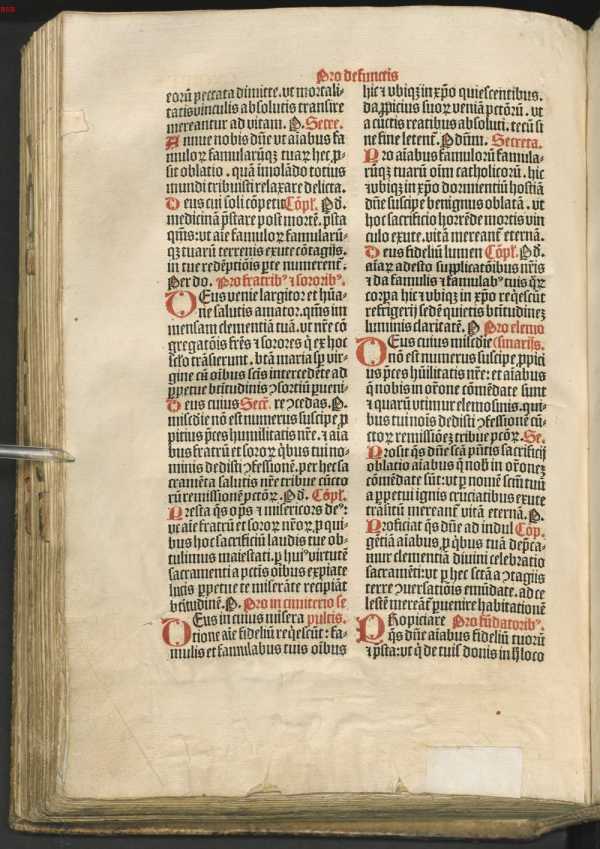 Pro defunctis
eorū peccata dimitte. vt mortali-
tatis vinculis absolutis transire
mereantur ad vitam. P. Secre.
Annue nobis dn̄e ut aīabus fa
muloꝝ famularūqꝫ tuaꝝ hec ꝓ-
sit oblatio. quā īmolādo totius
mundi tribuisti relaxare delicta.
Deus cui soli cōpetit Cōpl. Pd.
medicinā p̄stare post mortē. p̄sta
qm̄s: ut aīe famuloꝝ famularū-
qꝫ tuarū terrenis exute cōtagijs.
in tue redēptiōis ꝑte numerent᷑.
Per do. Pro fratribꝰ ⁊ sororibꝰ.
DEus venie largitor et hūa-
ne salutis amator. qm̄s im
mensam clementiā tuā. ut nr̄e cō
gregatōis fr̄es ⁊ sorores q̄ ex hoc
sc̄lo trāsierunt. btā maria sꝑ vir-
gine cū oībus scīs intercedēte ad
ꝑpetue btitudinis ꝯsortiū ꝑueni
Deus cuius Secr̄. re ꝯcedas. P.
misc̄die nō est numerus suscipe ꝓ
pitius p̄ces humilitatis nr̄e. ⁊ aīa
bus fratrū et soroꝝ q̄bus tui no-
minis dedisti ꝯfessionē. per hec sa
cramēta salutis nr̄e tribue cūcto
rū remissionē pctōꝝ. Pd. Cōpl.
Presta qs om̄ps ⁊ misericors deꝰ:
vt aīe fratrū et soroꝝ nr̄oꝝ ꝓ qui-
bus hoc sacrificiū laudis tue ob-
tulimus maiestati. ꝑ huiꝰ virtutē
sacramenti a pctīs oībus expiate
lucis ꝑpetue te miserāte recipiāt
btitudinē. P. Pro in cimiterio se
DEus in cuius misera pultis.
tione aīe fideliū reqēscūt: fa-
mulis et famulabus tuis oībus
hic ⁊ vbiqꝫ in xp̄o quiescentibus.
da ꝓpicius suoꝝ veniā pctōrū. vt
a cūctis reatibus absoluti. tecū si
ne fine letent᷑. P dūm. Secreta.
Pro aīabus famulorū famula-
rūqꝫ tuarū oīm catholicorū. hic
⁊ vbiqꝫ in xp̄o dormientiū hostiā
dn̄e suscipe benignus oblatā. vt
hoc sacrificio horrēde mortis vin
culo exute. vitā mereant᷑ eternā.
Deus fideliū lumen Cōpl. Pd.
aīaꝝ adesto supplicatōibus nr̄is
⁊ da famulis ⁊ famulabꝰ tuis qꝝ
corꝑa hic ⁊ vbiqꝫ in xp̄o reqēscūt
refrigerij sedē quietis btitudinēꝫ
luminis claritatē. P Pro elemo
DEus cuius misc̄die (sinarijs.
nō est numerus suscipe ꝓpici
us p̄ces hūilitatis nr̄e: et aīabus
q̄ nobis in or̄one cōmēdate sunt
⁊ quarū vtimur elemosinis. qui-
bus tui noīs dedisti ꝯfessionē cū-
ctoꝝ remissiōeꝫ tribue pcōꝝ. Se.
Prosit qs dn̄e scā pūtis sacrificij
oblatio aīabus q̄ nob̄ in or̄oneꝫ
cōmēdate sūt: vt ꝑ nomē sctū tuū
a ꝑpetui ignis cruciatibus exute
trāsitū mereant᷑ vitā eternā. P.
Proficiat qs dn̄e ad indul Cōp.
gētiā aīabus ꝓ q̄bus tuā dep̄ca-
mur clementiā diuini celebratio
sacramēti: vt ꝑ hec sctā a ꝯtagijs
terre ꝯuersatiōis emūdate. ad ce
lestē mereāt᷑ ꝑuenire habitationē
PRopiciare Pro fūdatoribꝰ.
qs dn̄e aīabus fideliū tuorū
⁊ p̄sta: vt q̄ de tuis donis in h̄ loco